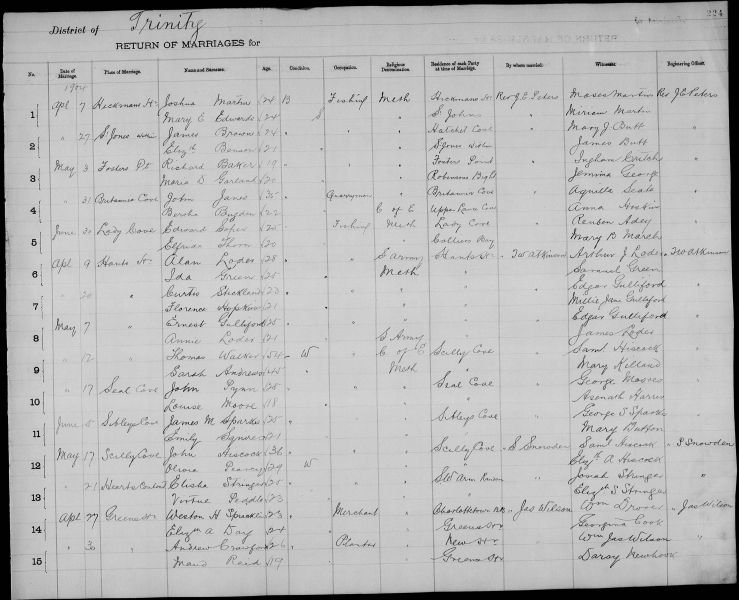 224
District of Trinity
RETURN OF MARRIAGES for
No. Date of Marriage. Place of Marriage. Name and Surname. Age. Condition. Occupation. Religious Denomination. Residence of each Party at time of Marriage. By whom married. Witnesses. Registering Officer.
1904
1 Apl 7 Heckmans Hr Joshua Martin 24 B Fishing Meth Heckmans Hr Rev J E Peters Moses Martin Rev J E Peters
Mary E Edwards 24 S " St Johns Miriam Martin
2 " 27 St Jones Within James Brown 24 " " " Hatchet Cove " Mary J Butt "
Elizth Benson 21 " St Jones Within James Butt
3 May 3 Fosters Pt Richard Baker 19 " " " Fosters Point " Ingham Critch "
Maria D Garland 20 " Robinson Bight Jemima George
4 " 31 Britannia Cove John Janes 35 " Quarryman " Britannia Cove " Aquilla Seats "
Bertha Bugden 22 C of E Upper Lance Cove Anna Hoskin
5 June 30 Lady Cove Edward Soper 25 " Fishing Meth Lady Cove " Reuben Adey "
Elfreda Thorn 20 " Colliers Bay Mary B March
6 Apl 9 Hants Hr Alan Loder 28 " " S Army Hants Hr " T W Atkinson Arthur J Loder " T W Atkinson
Ida Green 25 Meth " Samuel Green
7 " 20 " Curtis Strickland 20 " " " " " Edgar Gulliford "
Florence Hopkins 21 " " Millie Jane Gulliford
8 May 7 " Ernest Gulliford 25 " " " " " Edgar Gulliford "
Annie Loder 21 S Army " James Loder
9 " 12 " Thomas Walker 54 W " C of E Scilly Cove " Saml Hiscock "
Sarah Andrews 45 " Meth " Mary Killard
10 " 17 Seal Cove John Pynn 25 " " " Seal Cove " George Moores "
Louise Moore 18 " " Asenath Harris
11 June 5 Sibleys Cove James M Sparks 25 " " " Sibleys Cove " George S Sparks "
Emily 21 " " Mary Button
12 May 17 Scilly Cove John Hiscock 36 " " " Scilly Cove " S Snowden Saml Hiscock " S Snowden
Olivia Pearcey 29 W " " Elizth A Hiscock
13 " 21 Hearts Content Elisha Stringer 25 " " " SW Arm Random " Josiah Stringer "
Virtue Peddle 23 " " Elizth S Stringer
14 Apl 27 Greens Hr Weston H 23 " Merchant " Charlottetown " Jas Wilson Wm Drover " Jas Wilson
Elizth A Day 24 " Greens Hr Georgina Cook
15 " 30 " Andrew Crawford 26 " Planter " New Hr " Wm Jas Wilson "
Maud Reid 19 " Greens Hr Darcy Newhook